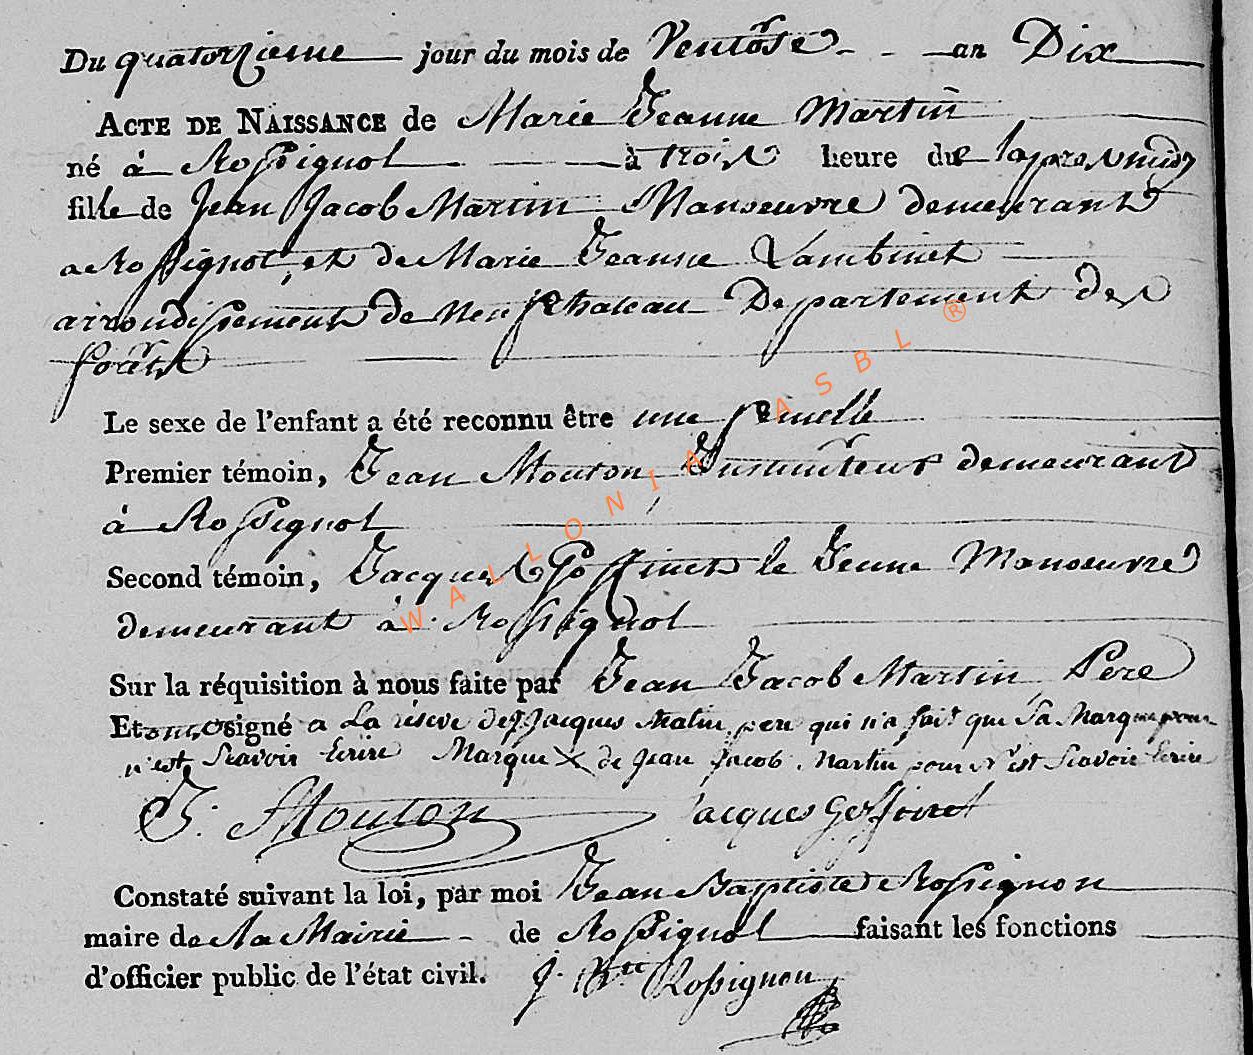 Du quatorzieme jour du mois de Ventôse an Dix
ACTE DE NAISSANCE de Marie Jeanne Martin
né à Rossignol à trois heure du lapresmidy
fille de Jean Jacob Martin Manoeuvre demeurant
a Rossignol, et de Marie Jeanne Lambinet
arrondissement de Neufchateau Departement des
forêts
Le sexe de l'enfant a été reconnu être une femelle
Premier témoin, Jean Mouton, Instituteur demeurant
à Rossignol
Second témoin, Jacques Goffinet le Jeune Manoeuvre
demeurant à Rossignol
Sur la réquisition à nous faite par Jean Jacob Martin Pere
Et ont signé a La réserve de Jacques Matin per qui n'a fait que Sa Marque pour
n'est Scavoir Ecrire Marque X de Jean Jacob Martin pour N'est Scavoir Ecrire
J. Mouton Jacques Goffinet
Constaté suivant la loi, par moi Jean Baptiste Rossignon
maire de la Mairie de Rossignol faisant les fonctions
d'officier public de l'état civil. J. Bte Rossignon
WALLONIA ASBL ®